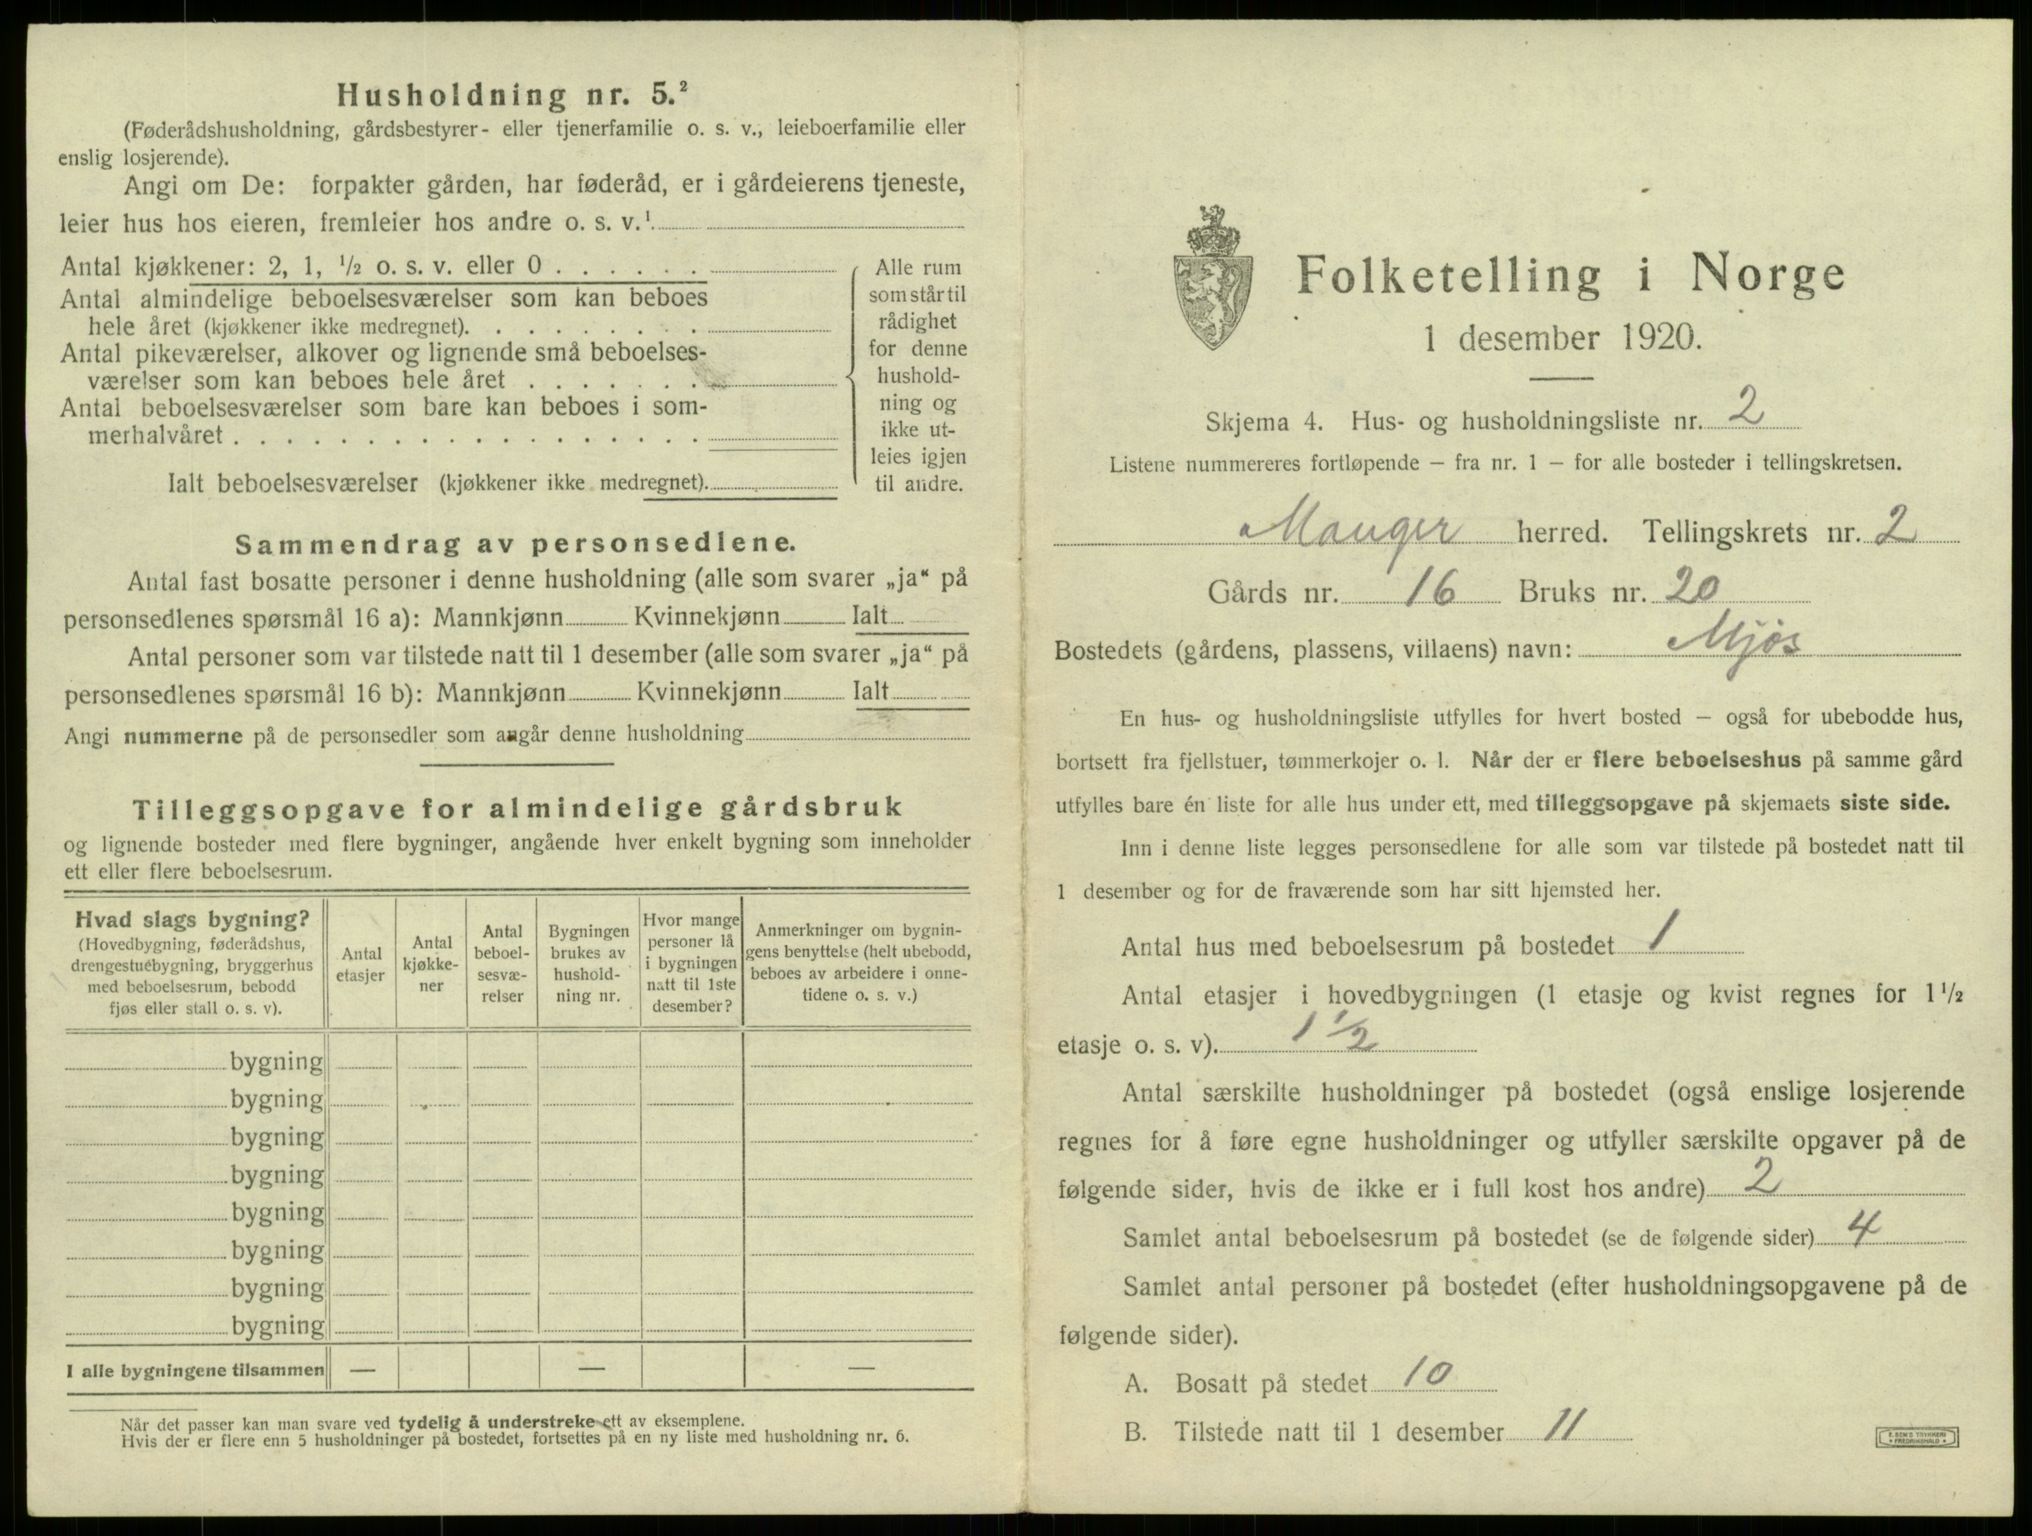 Husholdning nr. 5.²
(Føderådshusholdning, gårdsbestyrer- eller tjenerfamilie o. s. v., leieboerfamilie eller
enslig losjerende).
Angi om De: forpakter gården, har føderåd, er i gårdeierens tjeneste,
leier hus hos eieren, fremleier hos andre o. s. v.¹
Antal kjøkkener: 2, 1, ½ o. s. v. eller 0 . . . . . .
Antal almindelige beboelsesværelser som kan beboes
hele året (kjøkkener ikke medregnet). . . . . . . . .
Antal pikeværelser, alkover og lignende små beboelses-
værelser som kan beboes hele året . . . . . . .
Antal beboelsesværelser som bare kan beboes i som-
merhalvåret . . . . . . . . . . . . . . . . . .
Ialt beboelsesværelser (kjøkkener ikke medregnet).
Alle rum
som står til
rådighet
for denne
hushold-
ning og
ikke ut-
leies igjen
til andre.
Sammendrag av personsedlene.
Antal fast bosatte personer i denne husholdning (alle som svarer „ja“ på
personsedlenes spørsmål 16 a): Mannkjønn Kvinnekjønn Ialt
Antal personer som var tilstede natt til 1 desember (alle som svarer „ja“ på
personsedlenes spørsmål 16 b): Mannkjønn Kvinnekjønn Ialt
Angi nummerne på de personsedler som angår denne husholdning
Tilleggsopgave for almindelige gårdsbruk
og lignende bosteder med flere bygninger, angående hver enkelt bygning som inneholder
ett eller flere beboelsesrum.
Hvad slags bygning?
(Hovedbygning, føderådshus,
drengestuebygning, bryggerhus
med beboelsesrum, bebodd
fjøs eller stall o. s. v).
Antal
etasjer
Antal
kjøkke-
ner
Antal
beboel-
sesvæ-
relser
Bygningen
brukes av
hushold-
ning nr.
Hvor mange
personer lå
i bygningen
natt til 1ste
desember?
Anmerkninger om bygnin-
gens benyttelse (helt ubebodd,
beboes av arbeidere i onne-
tidene o. s. v.)
bygning
bygning
bygning
bygning
bygning
bygning
bygning
bygning
I alle bygningene tilsammen — — —
Når det passer kan man svare ved tydelig å understreke ett av eksemplene.
Hvis der er flere enn 5 husholdninger på bostedet, fortsettes på en ny liste med husholdning nr. 6.
Folketelling i Norge
1 desember 1920.
Skjema 4. Hus- og husholdningsliste nr. 2
Listene nummereres fortløpende – fra nr. 1 – for alle bosteder i tellingskretsen.
Manger herred. Tellingskrets nr. 2
Gårds nr. 16 Bruks nr. 20
Bostedets (gårdens, plassens, villaens) navn: Mjøs
En hus- og husholdningsliste utfylles for hvert bosted – også for ubebodde hus,
bortsett fra fjellstuer, tømmerkojer o. l. Når der er flere beboelseshus på samme gård
utfylles bare én liste for alle hus under ett, med tilleggsopgave på skjemaets siste side.
Inn i denne liste legges personsedlene for alle som var tilstede på bostedet natt til
1 desember og for de fraværende som har sitt hjemsted her.
Antal hus med beboelsesrum på bostedet 1
Antal etasjer i hovedbygningen (1 etasje og kvist regnes for 1½
etasje o. s. v). 1 ½
Antal særskilte husholdninger på bostedet (også enslige losjerende
regnes for å føre egne husholdninger og utfyller særskilte opgaver på de
følgende sider, hvis de ikke er i full kost hos andre) 2
Samlet antal beboelsesrum på bostedet (se de følgende sider) 4
Samlet antal personer på bostedet (efter husholdningsopgavene på de
følgende sider).
A. Bosatt på stedet 10
B. Tilstede natt til 1 desember 11
E. SEM'S TRYKKERI
• FREDRIKSHALD •